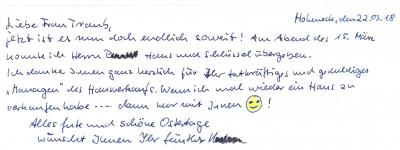 Hoheneck, den 22.03.18
Liebe Frau Traub,
jetzt ist es nun doch endlich soweit! Am Abend des 15. März
konnte ich Herrn Haus und Schlüssel übergeben.
Ich danke Ihnen ganz herzlich für Ihr tatkräftiges und geduldiges
"Managen" des Hausverkaufs. Wenn ich mal wieder ein Haus zu
verkaufen habe .... dann nur mit Ihnen !
Alles Gute und schöne Ostertage
wünscht Ihnen Ihr